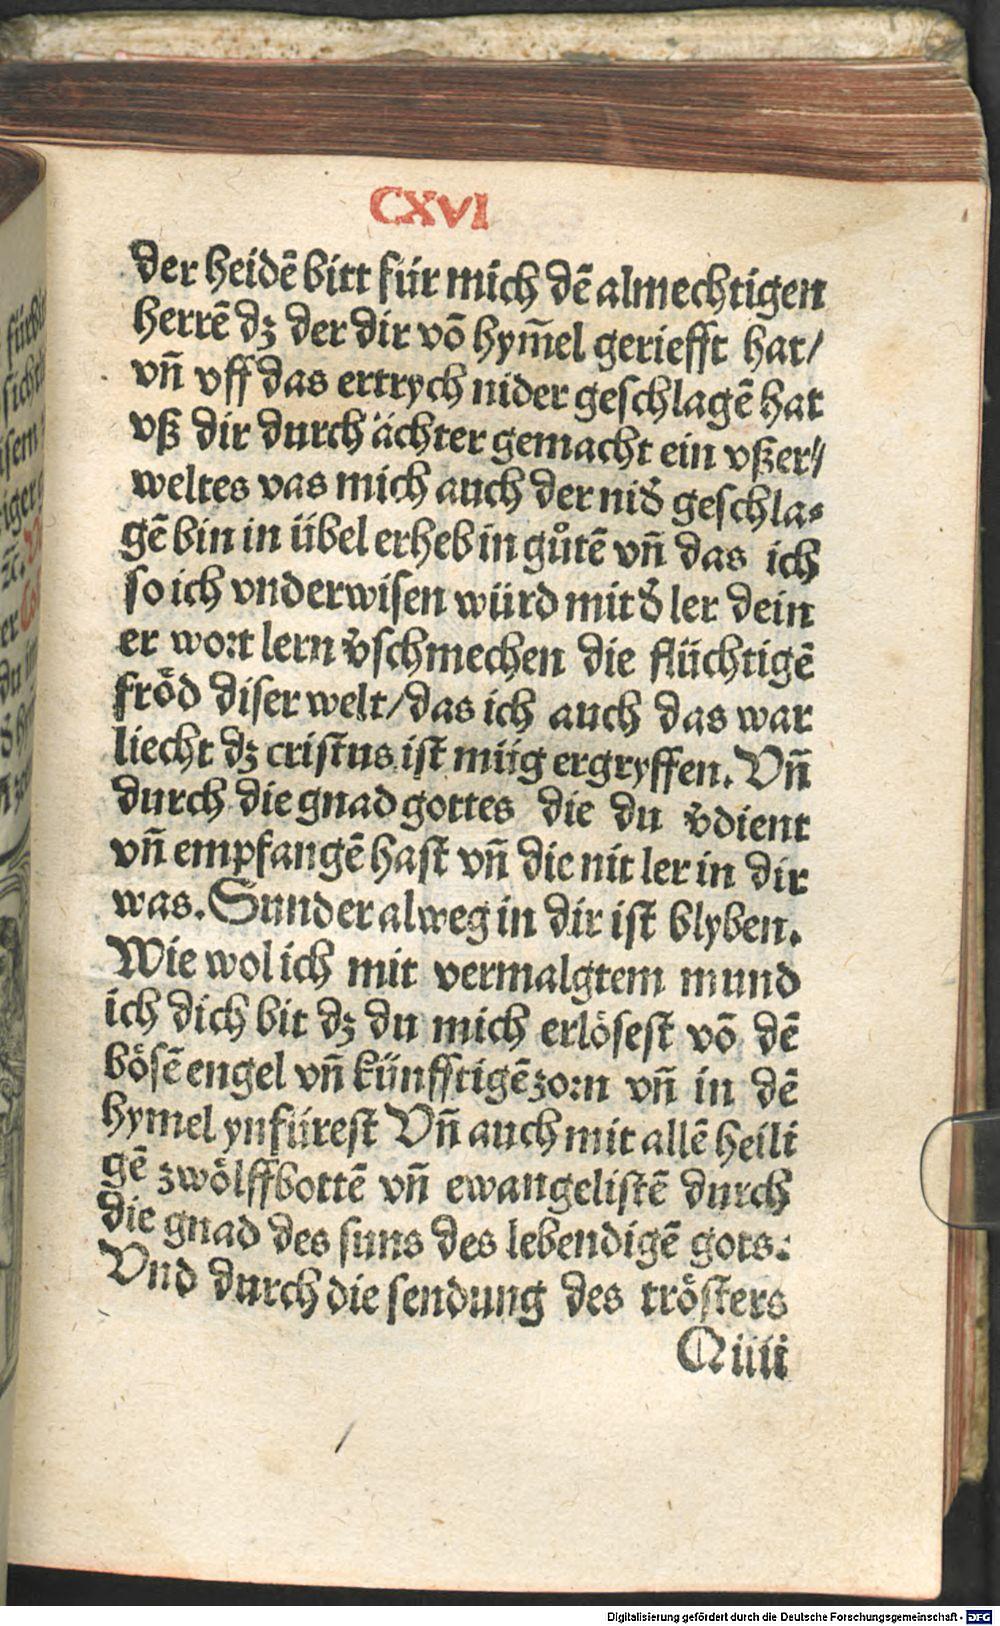 CXVI
der heidē bitt für mich dē almechtigen
herrē dʒ der dir vō hym̄el geriefft hat/
vn̄ vff das ertrych nider geschlagē hat
vß dir durch ächter gemacht ein vßer⸗
weltes vas mich auch der nid̛ geschla⸗
gē bin in übel erheb in gůtē vn̄ das ich
so ich vnderwisen würd mit d̛ ler dein
er wort lern v̛schmechen die flüchtigē
fröd diser welt/das ich auch das war
liecht dʒ cristus ist müg ergryffen. Vn̄
durch die gnad gottes die du v̛dient
vn̄ empfangē hast vn̄ die nit ler in dir
was. Sunder alweg in dir ist blyben.
Wie wol ich mit vermalgtem mund
ich dich bit dʒ du mich erlösest vō dē
bösē engel vn̄ künfftigē zorn vn̄ in dē
hymel ynfürest Vn̄ auch mit allē heili
gē zwölffbottē vn̄ ewangelistē durch
die gnad des suns des lebendigē gots:
Vnd durch die sendung des trösters
Qiiii
Digitalisierung gefördert durch die Deutsche Forschungsgemeinschaft - DFG